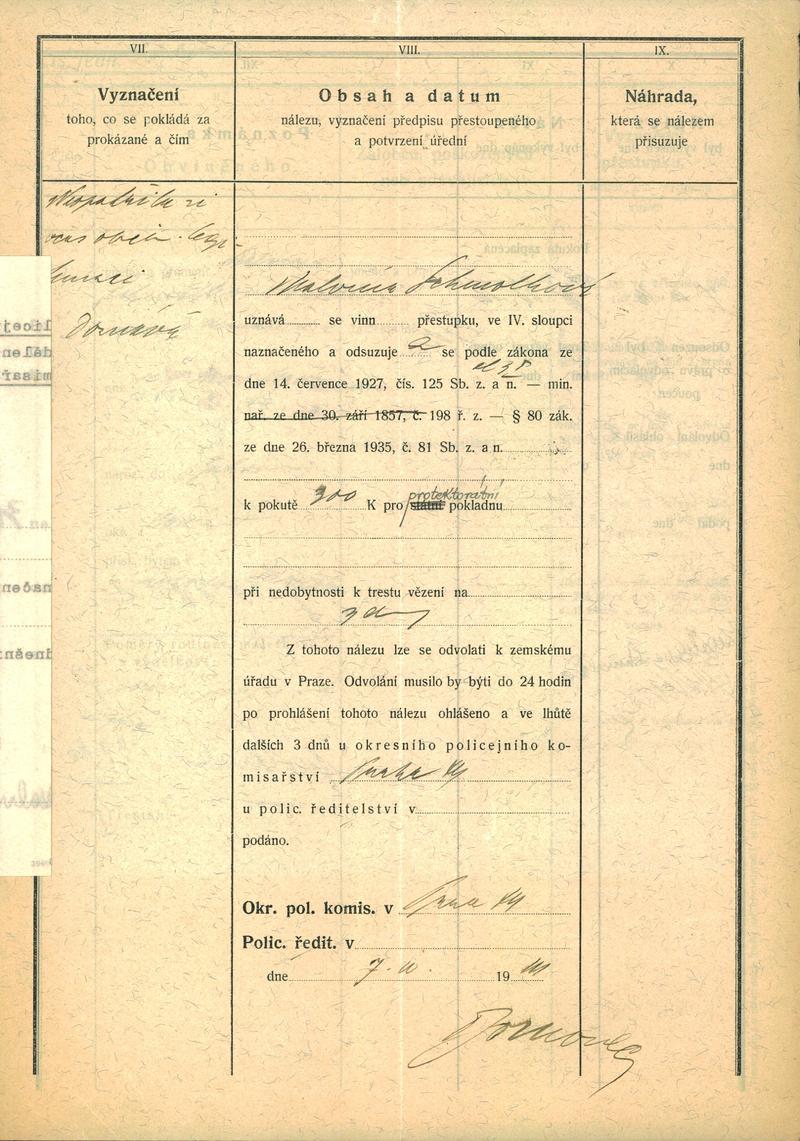 VII.
Vyznačení
toho, co se pokládá za
prokázané a čím
VIII.
Obsah a datum
nálezu, vyznačení předpisu přestoupeného
a potvrzení úřední
IX.
Náhrada,
která se nálezem
přisuzuje
Neopatřila si
včas občan. legi-
timaci
Doznává
Malvina Schmolková
uznává se vinn přestupku, ve IV. sloupci
naznačeného a odsuzuje a se podle zákona ze
dne 14. července 1927, čís. 125 Sb. z. a n. — min.
nař. ze dne 30. září 1857, č. 198 ř. z. — § 80 zák.
ze dne 26. března 1935, č. 81 Sb. z. a n.
protektorátní
k pokutě 300 K pro státní pokladnu
při nedobytnosti k trestu vězení na
3 d
Z tohoto nálezu lze se odvolati k zemskému
úřadu v Praze. Odvolání musilo by býti do 24 hodin
po prohlášení tohoto nálezu ohlášeno a ve lhůtě
dalších 3 dnů u okresního policejního ko-
misařství Praha
u polic. ředitelství v
podáno.
Okr. pol. komis. v Praha
Polic. ředit. v
dne 7. 19